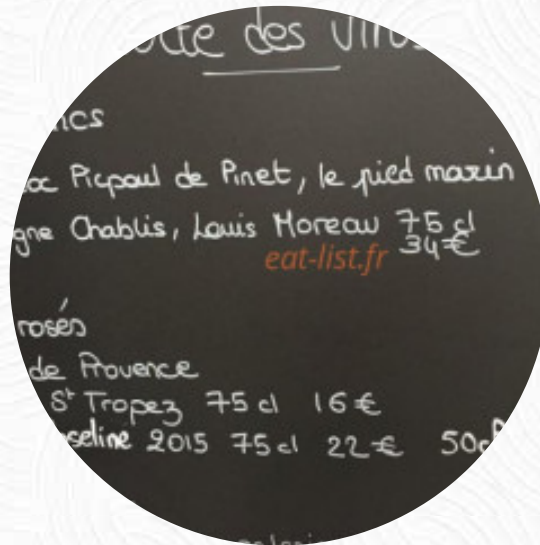 des vins
ncs
oc Picpoul de Pinet, le pied marin
gne Chablis, Louis Moreau 75 cl
34€
eat-list.fr
rosés
de Provence
St Tropez 75 cl 16€
seline 2015 75 cl 22€ 50cl